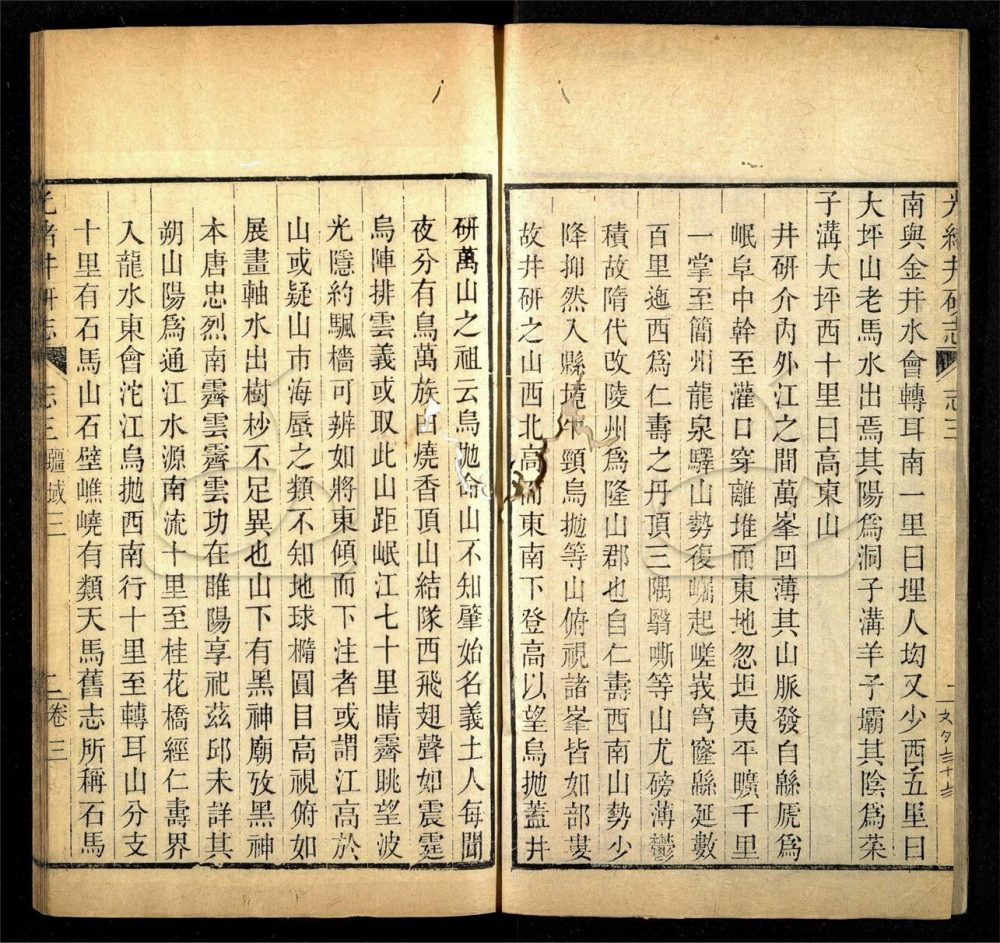 光緒井研志 志三
南與金井水會轉耳南一里曰埋人坳又少西五里曰
大坪山老馬水出焉其陽爲洞子溝羊子壩其陰爲菜
子溝大坪西十里曰高東山
井研介內外江之間萬峯回薄其山脈發自緜虒爲
岷阜中幹至灌口穿離堆而東地忽坦夷平曠千里
一掌至簡州龍泉驛山勢復崛起嵯峩穹窿緜延數
百里迤西爲仁壽之丹頂三隅翳嘶等山尤磅薄鬱
積故隋代改陵州爲隆山郡也自仁壽西南山勢少
降抑然入縣境牛頸烏拋等山俯視諸峯皆如部婁
故井研之山西北高而東南下登高以望烏拋蓋井
研萬山之祖云烏拋命山不知肇始名義土人每聞
夜分有鳥萬族由燒香頂山結隊西飛翅聲如震霆
烏陣排雲義或取此山距岷江七十里晴霽眺望波
光隱約颿檣可辨如將東傾而下注者或謂江高於
山或疑山市海蜃之類不知地球橢圓目高視俯如
展畫軸水出樹杪不足異也山下有黑神廟攷黑神
本唐忠烈南霽雲霽雲功在睢陽享祀茲邱未詳其
朔山陽爲通江水源南流十里至桂花橋經仁壽界
入龍水東會沱江烏拋西南行十里至轉耳山分支
十里有石馬山石壁嶕嶢有類天馬舊志所稱石馬
光緒井研志 志三 疆域三 二 卷三